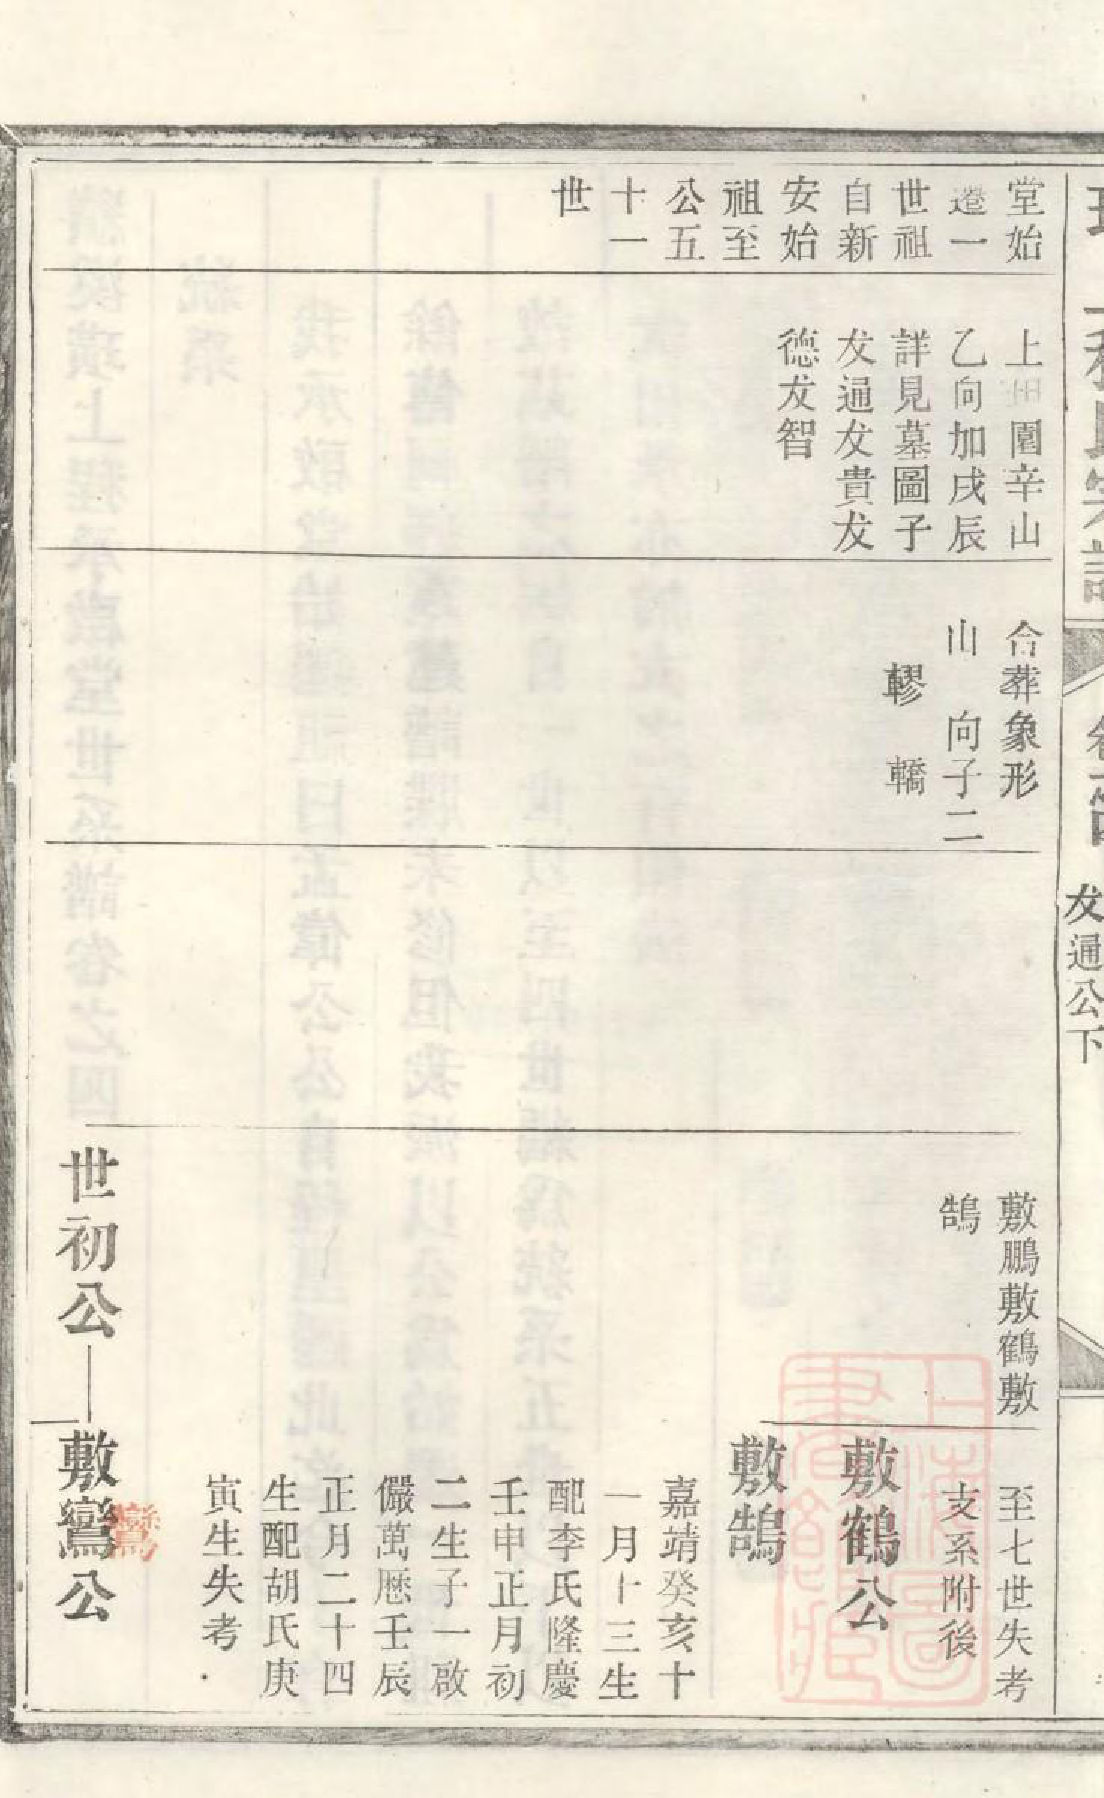 堂始
遷一
世祖
自新
安始
祖至
公五
十一
世
上田園辛山
乙向加戌辰
詳見墓圖子
友通友貴友
德友智
合葬象形
山　向子二
轇　轎
敷鵬敷鶴敷
鵠
世初公
至七世失考
支系附後
敷鶴公
敷鵠
嘉靖癸亥十
一月十三生
配李氏隆慶
壬申正月初
二生子一啟
儼萬厯壬辰
正月二十四
生配胡氏庚
寅生失考
敷鸞公
鸞
友通公下